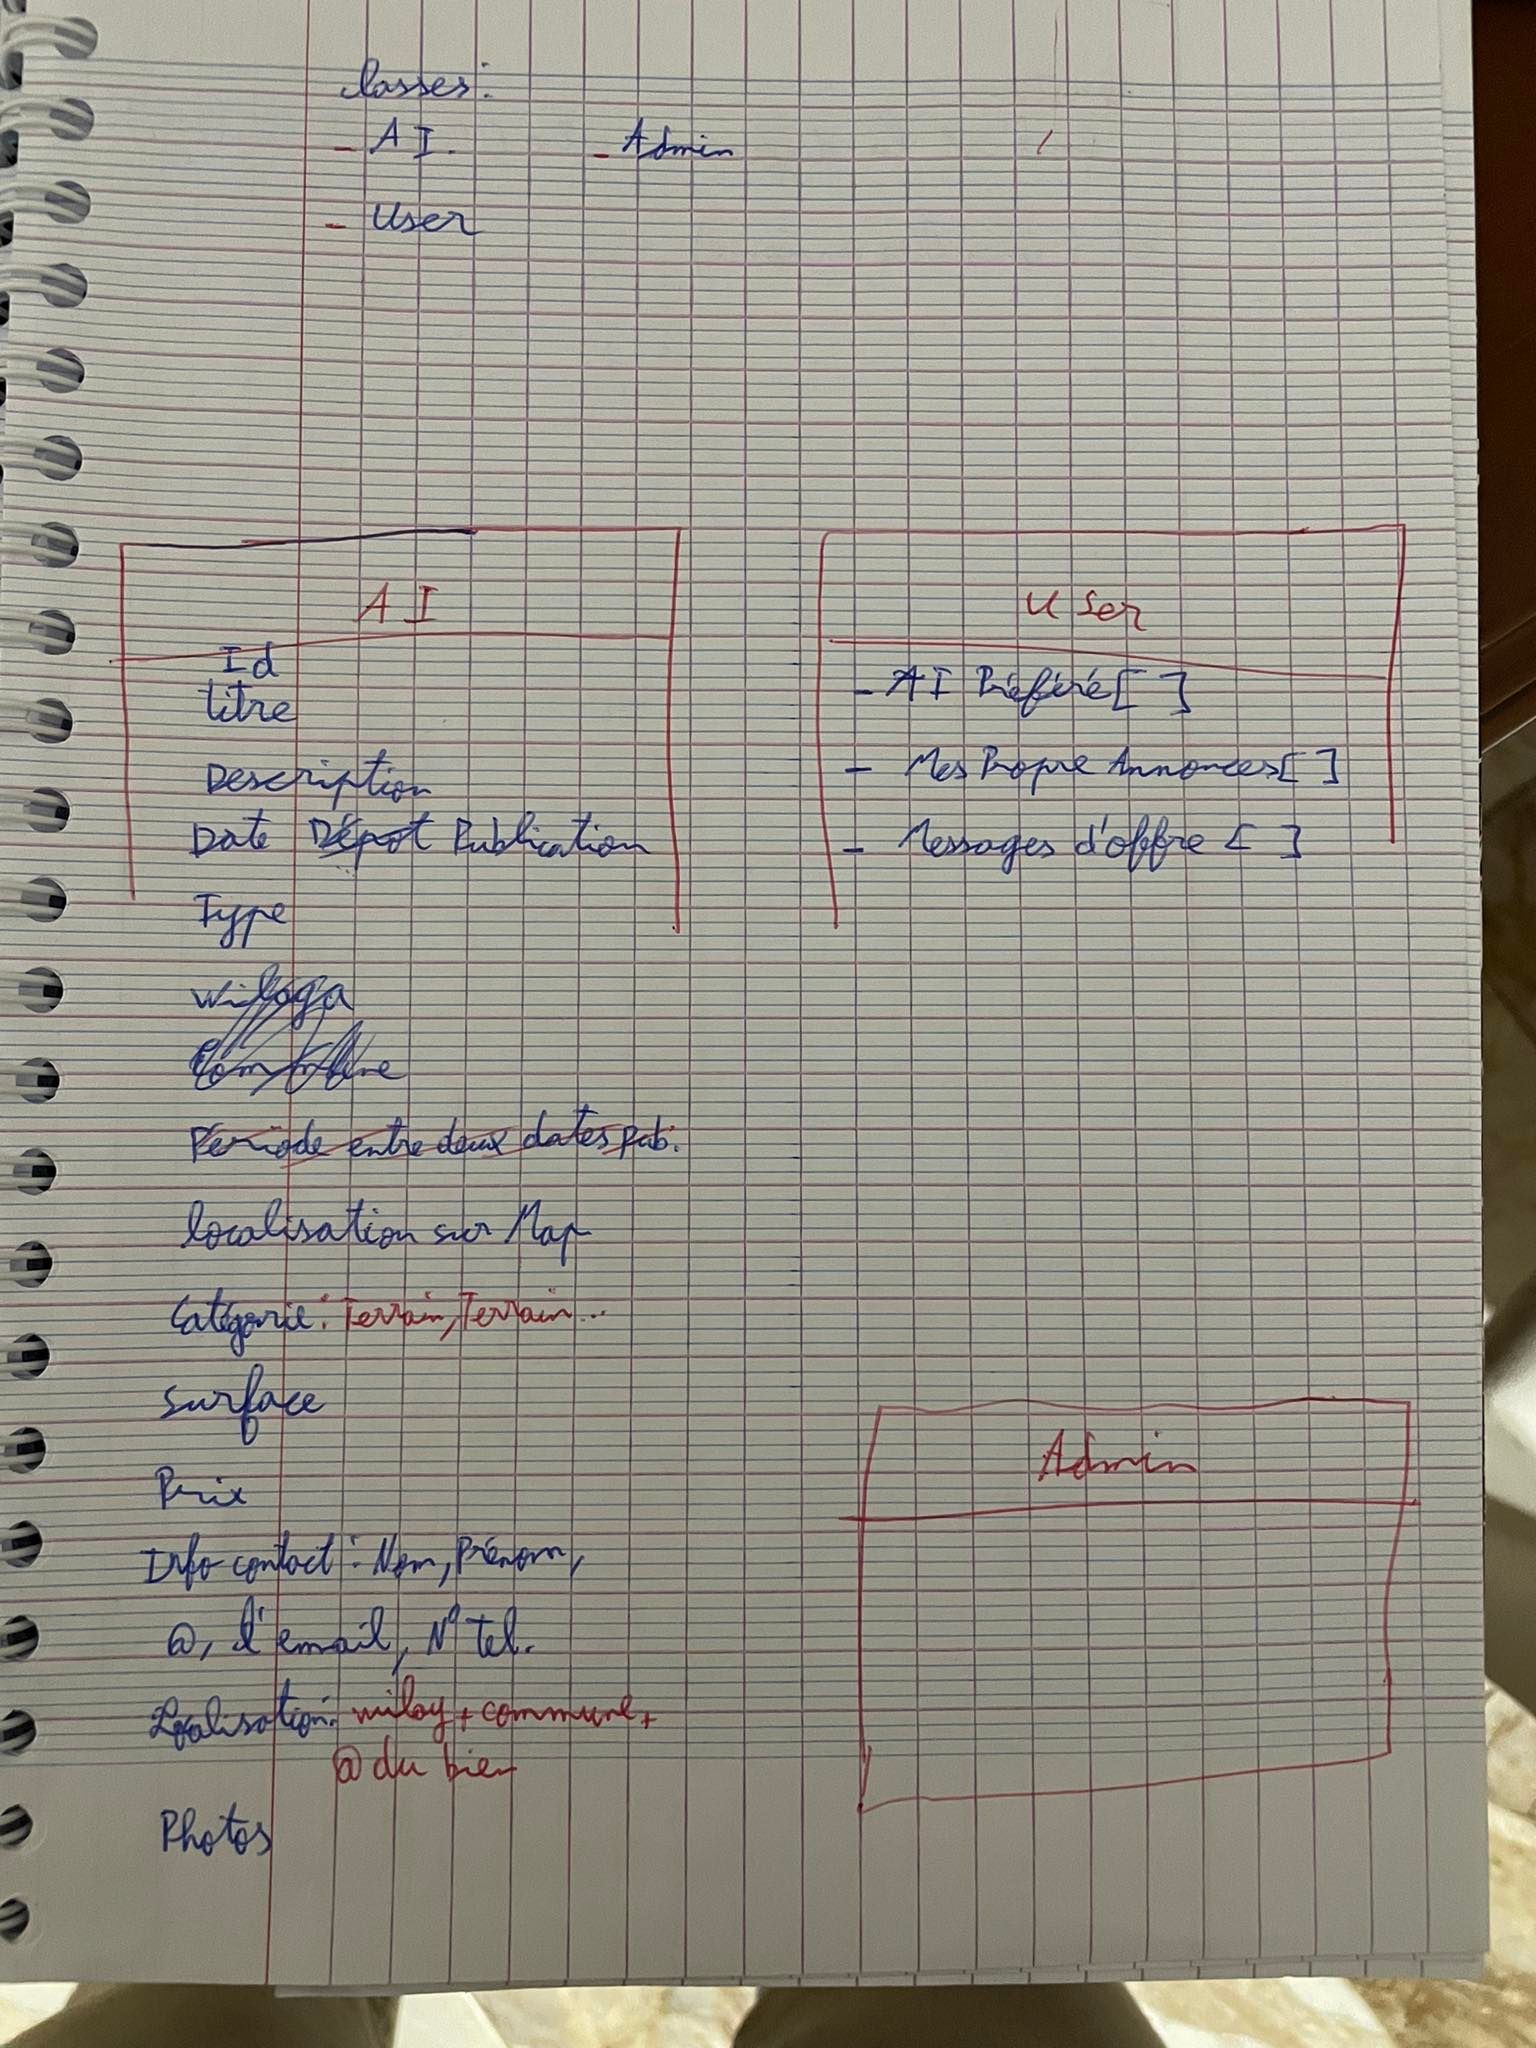 Classes:
- AI. - Admin
- User
AI
Id
titre
Description
Date Dépot Publication
Type
Wilaya
Commune
Période entre deux dates pub.
localisation sur Map
Catégorie: Terrain, Terrain...
Surface
Prix
Info contact: Nom, Prénom,
@, l'email, N° tel.
Localisation: wilay + commune +
@ du bien
Photos
User
- AI Préféré [ ]
- Mes Propre Annonces [ ]
- Messages d'offre [ ]
Admin